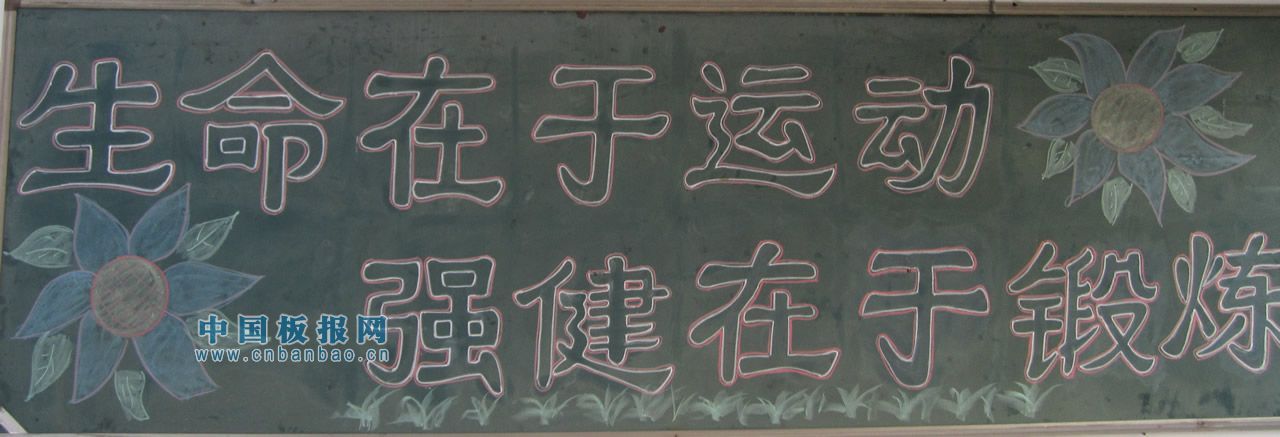 生命在于运动
强健在于锻炼
中国板报网
www.cnbanbao.cn